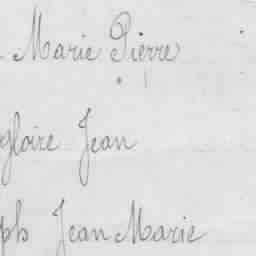 Marie Pierre
gloire Jean
ph Jean Marie